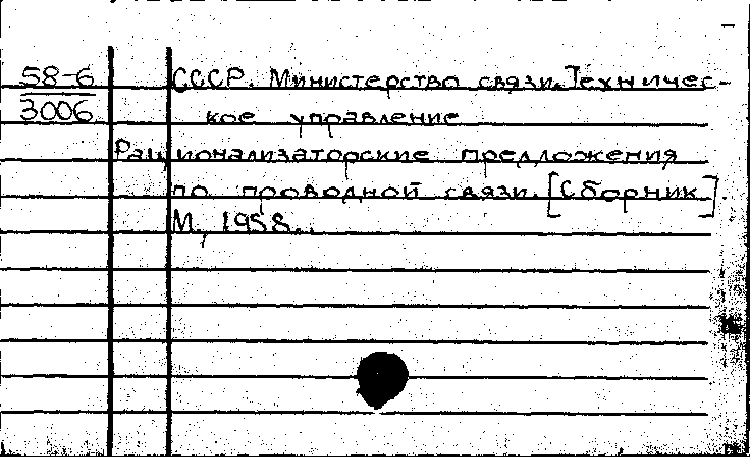 58-6
3006
СССР. Министерство связи. Техничес-
кое управление
Рационализаторские предложения
по проводной связи. [Сборник]
М., 1958.